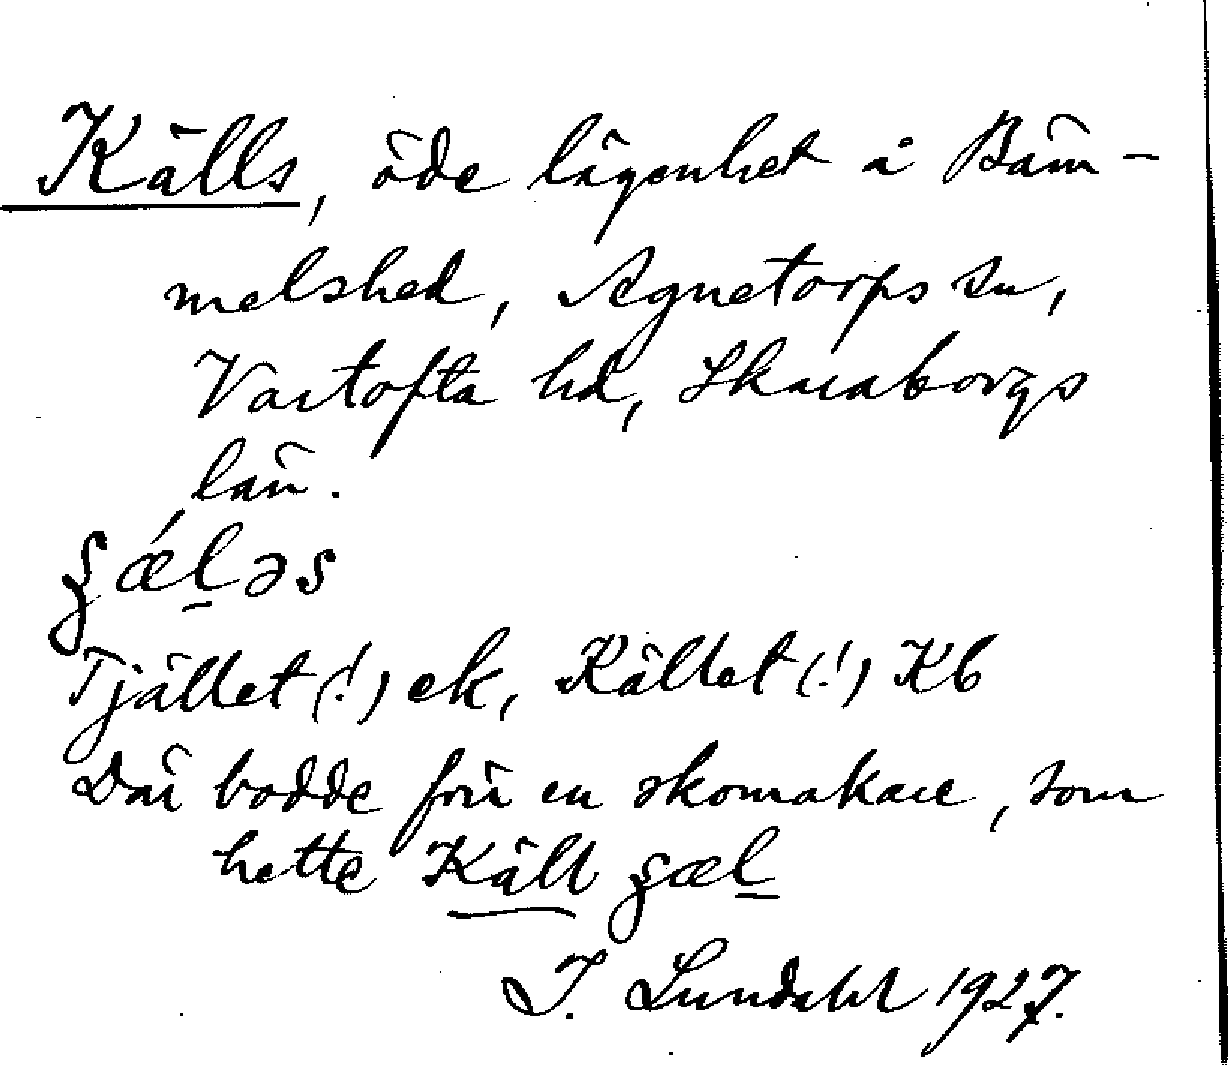 Källs, öde lägenhet å Bäm-
melshed, Agnetorps sn,
Vartofta hd, Skaraborgs
län.
ʂǽl̲əs
Tjället (!) ek, Kället (!) Kb
Där bodde förr en skomakare, som
hette Käll ʂæl̲
I. Lundahl 1927.